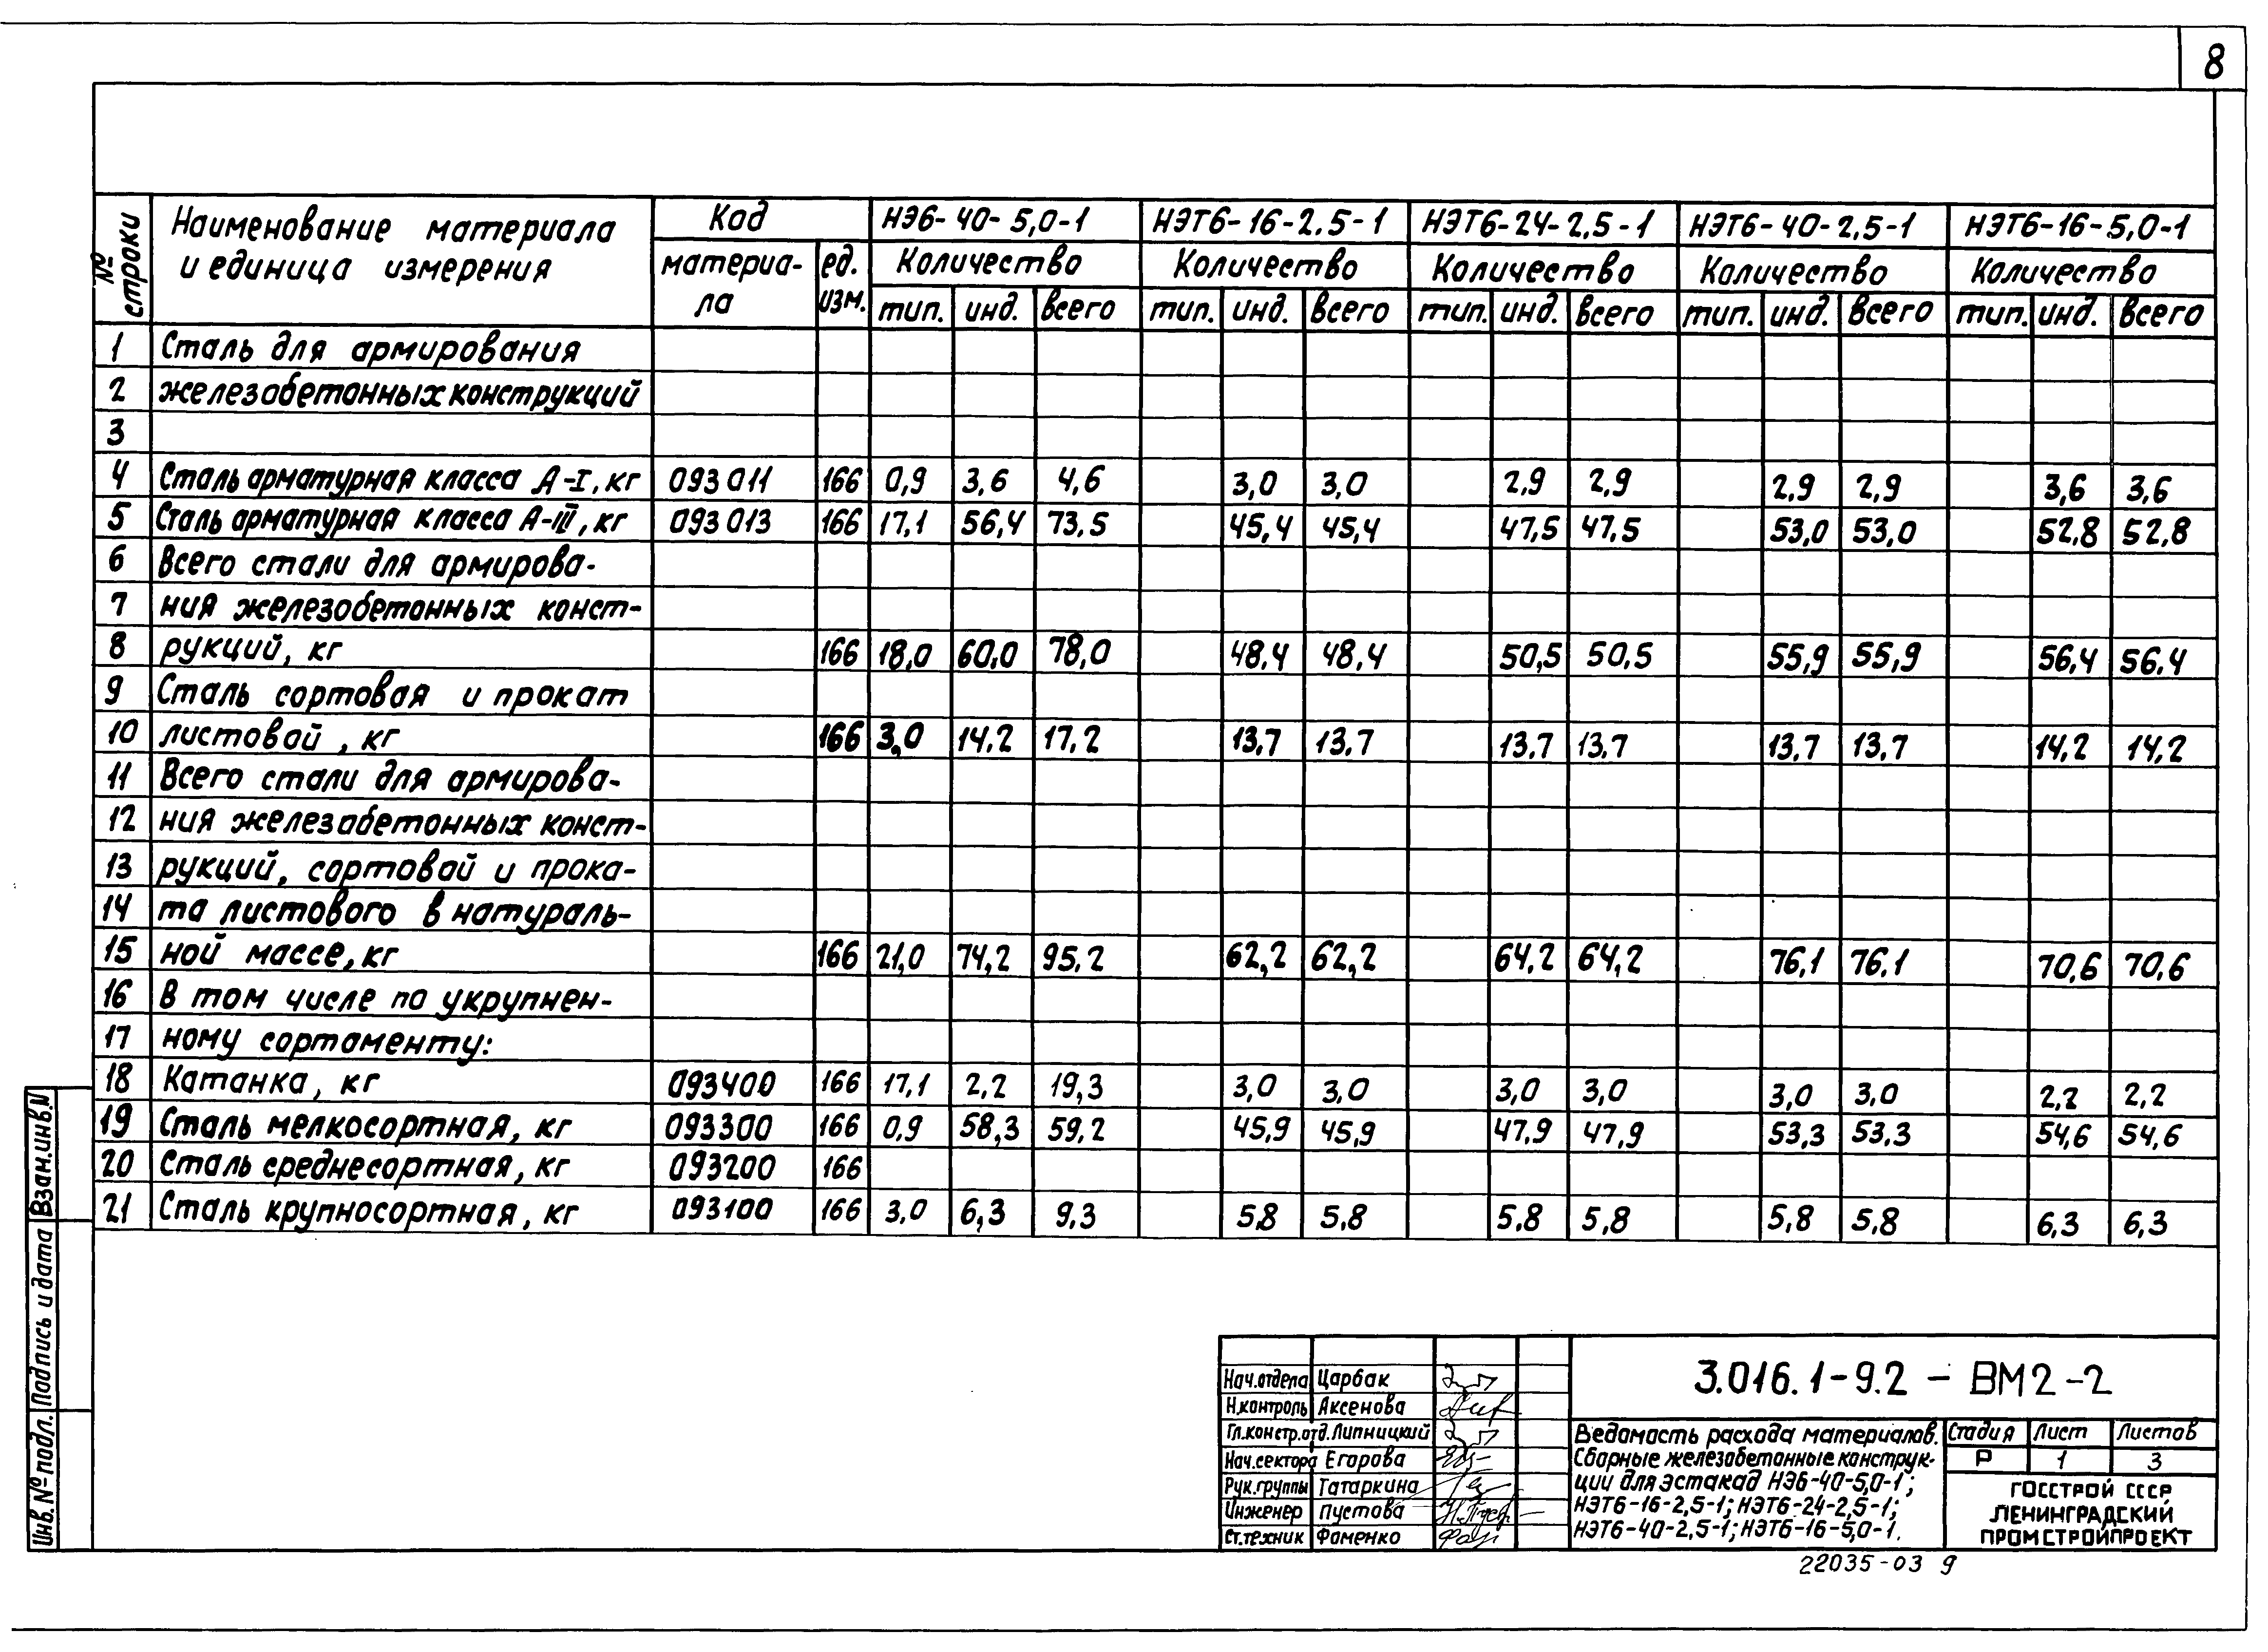 8
№ строки Наименование материала и единица измерения Код НЭ6-40-5,0-1 НЭТ6-16-2.5-1 НЭТ6-24-2,5-1 НЭТ6-40-2,5-1 НЭТ6-16-5,0-1
материа-ла ед. изм. Количество Количество Количество Количество Количество
тип. инд. всего тип. инд. всего тип. инд. всего тип. инд. всего тип. инд. всего
1 Сталь для армирования
2 железобетонных конструкций
3
4 Сталь арматурная класса А-I, кг 093011 166 0,9 3,6 4,6 3,0 3,0 2,9 2,9 2,9 2,9 3,6 3,6
5 Сталь арматурная класса А-III, кг 093013 166 17,1 56,4 73,5 45,4 45,4 47,5 47,5 53,0 53,0 52,8 52,8
6 Всего стали для армирова-
7 ния железобетонных конст-
8 рукций, кг 166 18,0 60,0 78,0 48,4 48,4 50,5 50,5 55,9 55,9 56,4 56,4
9 Сталь сортовая и прокат
10 листовой, кг 166 3,0 14,2 17,2 13,7 13,7 13,7 13,7 13,7 13,7 14,2 14,2
11 Всего стали для армирова-
12 ния железобетонных конст-
13 рукций, сортовой и прока-
14 та листового в натураль-
15 ной массе, кг 166 21,0 74,2 95,2 62,2 62,2 64,2 64,2 76,1 76,1 70,6 70,6
16 В том числе по укрупнен-
17 ному сортаменту:
18 Катанка, кг 093400 166 17,1 2,2 19,3 3,0 3,0 3,0 3,0 3,0 3,0 2,2 2,2
19 Сталь мелкосортная, кг 093300 166 0,9 58,3 59,2 45,9 45,9 47,9 47,9 53,3 53,3 54,6 54,6
20 Сталь среднесортная, кг 093200 166
21 Сталь крупносортная, кг 093100 166 3,0 6,3 9,3 5,8 5,8 5,8 5,8 5,8 5,8 6,3 6,3
Инв.№ подл. Подпись и дата Взам.инв.№
Нач.отдела Царбак
Н.контроль Аксенова
Гл.констр.отд. Липницкий
Нач.сектора Егорова
Рук.группы Татаркина
Инженер Пустова
Ст.техник Фоменко
3.016.1-9.2 - ВМ2-2
Ведомость расхода материалов.
Сборные железобетонные конструк-
ции для эстакад НЭ6-40-5,0-1;
НЭТ6-16-2,5-1; НЭТ6-24-2,5-1;
НЭТ6-40-2,5-1; НЭТ6-16-5,0-1.
Стадия Лист Листов
Р 1 3
ГОССТРОЙ СССР
ЛЕНИНГРАДСКИЙ
ПРОМСТРОЙПРОЕКТ
22035-03 9